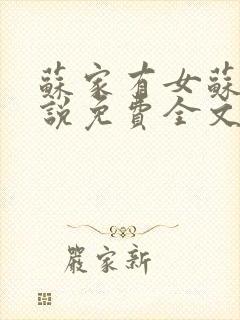 蘇家有女蘇
說免費全文
嚴家新